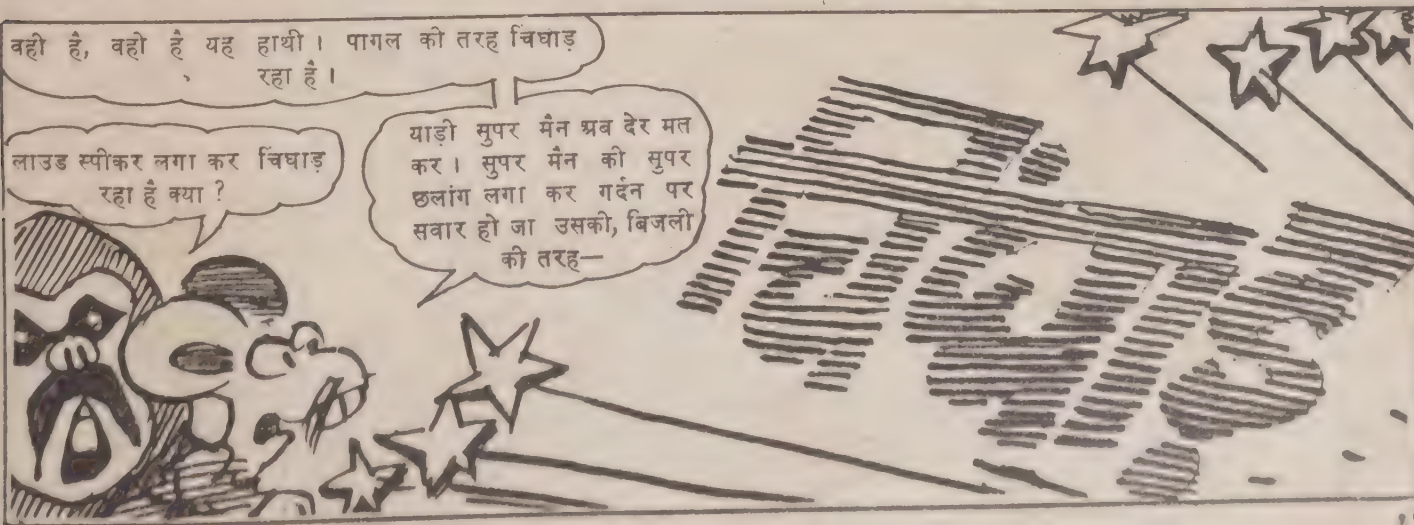 वही है, वहो है यह हाथी । पागल की तरह चिंघाड़
रहा है ।
लाउड स्पीकर लगा कर चिंघाड़
रहा है क्या ?
याड़ी सुपर मैन श्रब देर मत
कर । सुपर मैन की सुपर
छलांग लगा कर गर्दन पर
सवार हो जा उसकी, बिजली
की तरह—